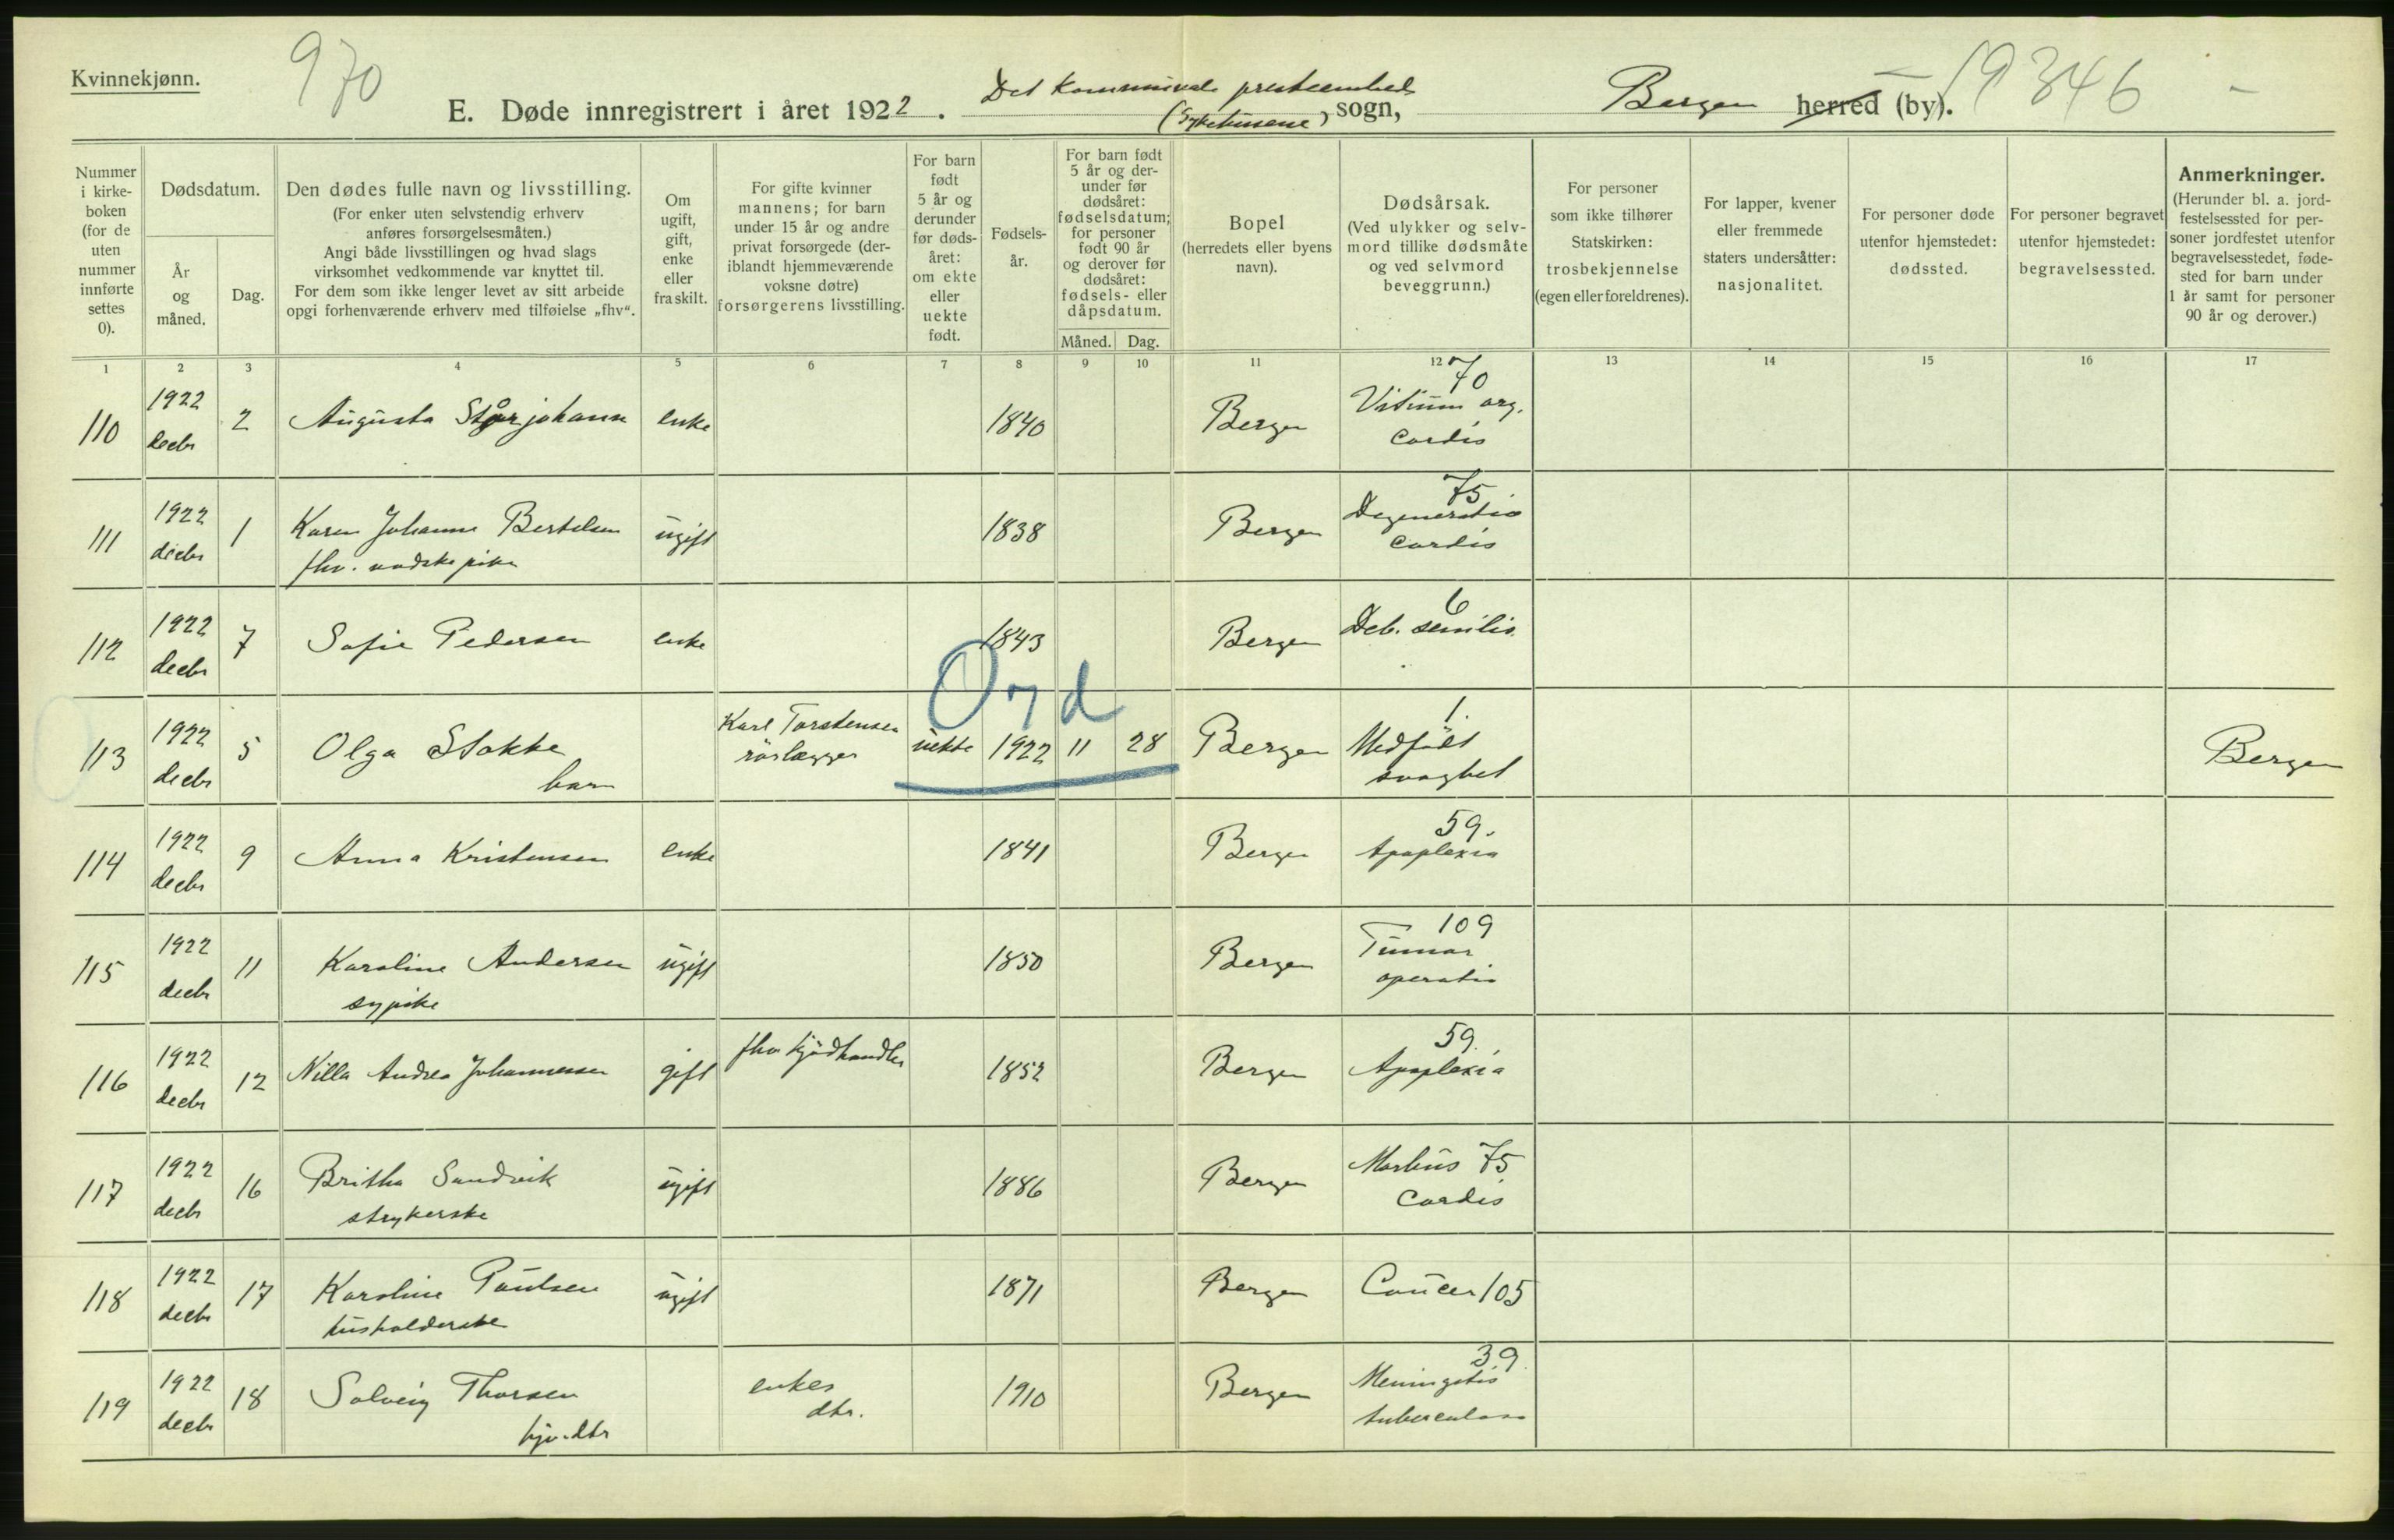 Kvinnekjønn.
970
E. Døde innregistrert i året 1922.
Det kommunale presteembede
(Sykehusene) sogn,
Bergen herred (by).
19346 -
Nummer i kirkeboken (for de uten nummer innførte settes 0).
Dødsdatum.
År og måned.
Dag.
Den dødes fulle navn og livsstilling.
(For enker uten selvstendig erhverv anføres forsørgelsesmåten.)
Angi både livsstillingen og hvad slags virksomhet vedkommende var knyttet til.
For dem som ikke lenger levet av sitt arbeide opgi forhenværende erhverv med tilføielse „fhv“.
Om ugift, gift, enke eller fraskilt.
For gifte kvinner mannens; for barn under 15 år og andre privat forsørgede (deriblandt hjemmeværende voksne døtre) forsørgerens livsstilling.
For barn født 5 år og derunder før dødsåret: om ekte eller uekte født.
Fødselsår.
For barn født 5 år og derunder før dødsåret: fødselsdatum; for personer født 90 år og derover før dødsåret: fødsels- eller dåpsdatum.
Måned. Dag.
Bopel
(herredets eller byens navn).
Dødsårsak.
(Ved ulykker og selvmord tillike dødsmåte og ved selvmord beveggrunn.)
For personer som ikke tilhører Statskirken: trosbekjennelse (egen eller foreldrenes).
For lapper, kvener eller fremmede staters undersåtter: nasjonalitet.
For personer døde utenfor hjemstedet: dødssted.
For personer begravet utenfor hjemstedet: begravelsessted.
Anmerkninger.
(Herunder bl. a. jordfestelsessted for personer jordfestet utenfor begravelsesstedet, fødested for barn under 1 år samt for personer 90 år og derover.)
1 2 3 4 5 6 7 8 9 10 11 12 13 14 15 16 17
110 1922 decbr 2 Augusta Storjohann enke 1840 Bergen 70 Vitium org. cordis
111 1922 decbr 1 Karen Johanne Bertelsen fhv. vaskepike ugift 1838 Bergen 75 Degeneratio cordis
112 1922 decbr 7 Sofie Pedersen enke 1843 Bergen 6 Deb. senilis
Ord
113 1922 decbr 5 Olga Stokke barn Karl Torstensen rørlægger uekte 1922 11 28 Bergen 1. Medfødt svaghet Bergen
114 1922 decbr 9 Anna Kristensen enke 1841 Bergen 59. Apoplexia
115 1922 decbr 11 Karoline Andersen sypike ugift 1850 Bergen 109 Tumor operatio
116 1922 decbr 12 Nilla Andrea Johannessen gift fhv kjødhandler 1852 Bergen 59. Apoplexia
117 1922 decbr 16 Britha Sandvik strykerske ugift 1886 Bergen Morbus 75 Cordis
118 1922 decbr 17 Karoline Paulsen husholderske ugift 1871 Bergen Cancer 105
119 1922 decbr 18 Solveig Thorsen hjv. dtr enkes dtr. 1910 Bergen 39. Meningitis tuberculosa